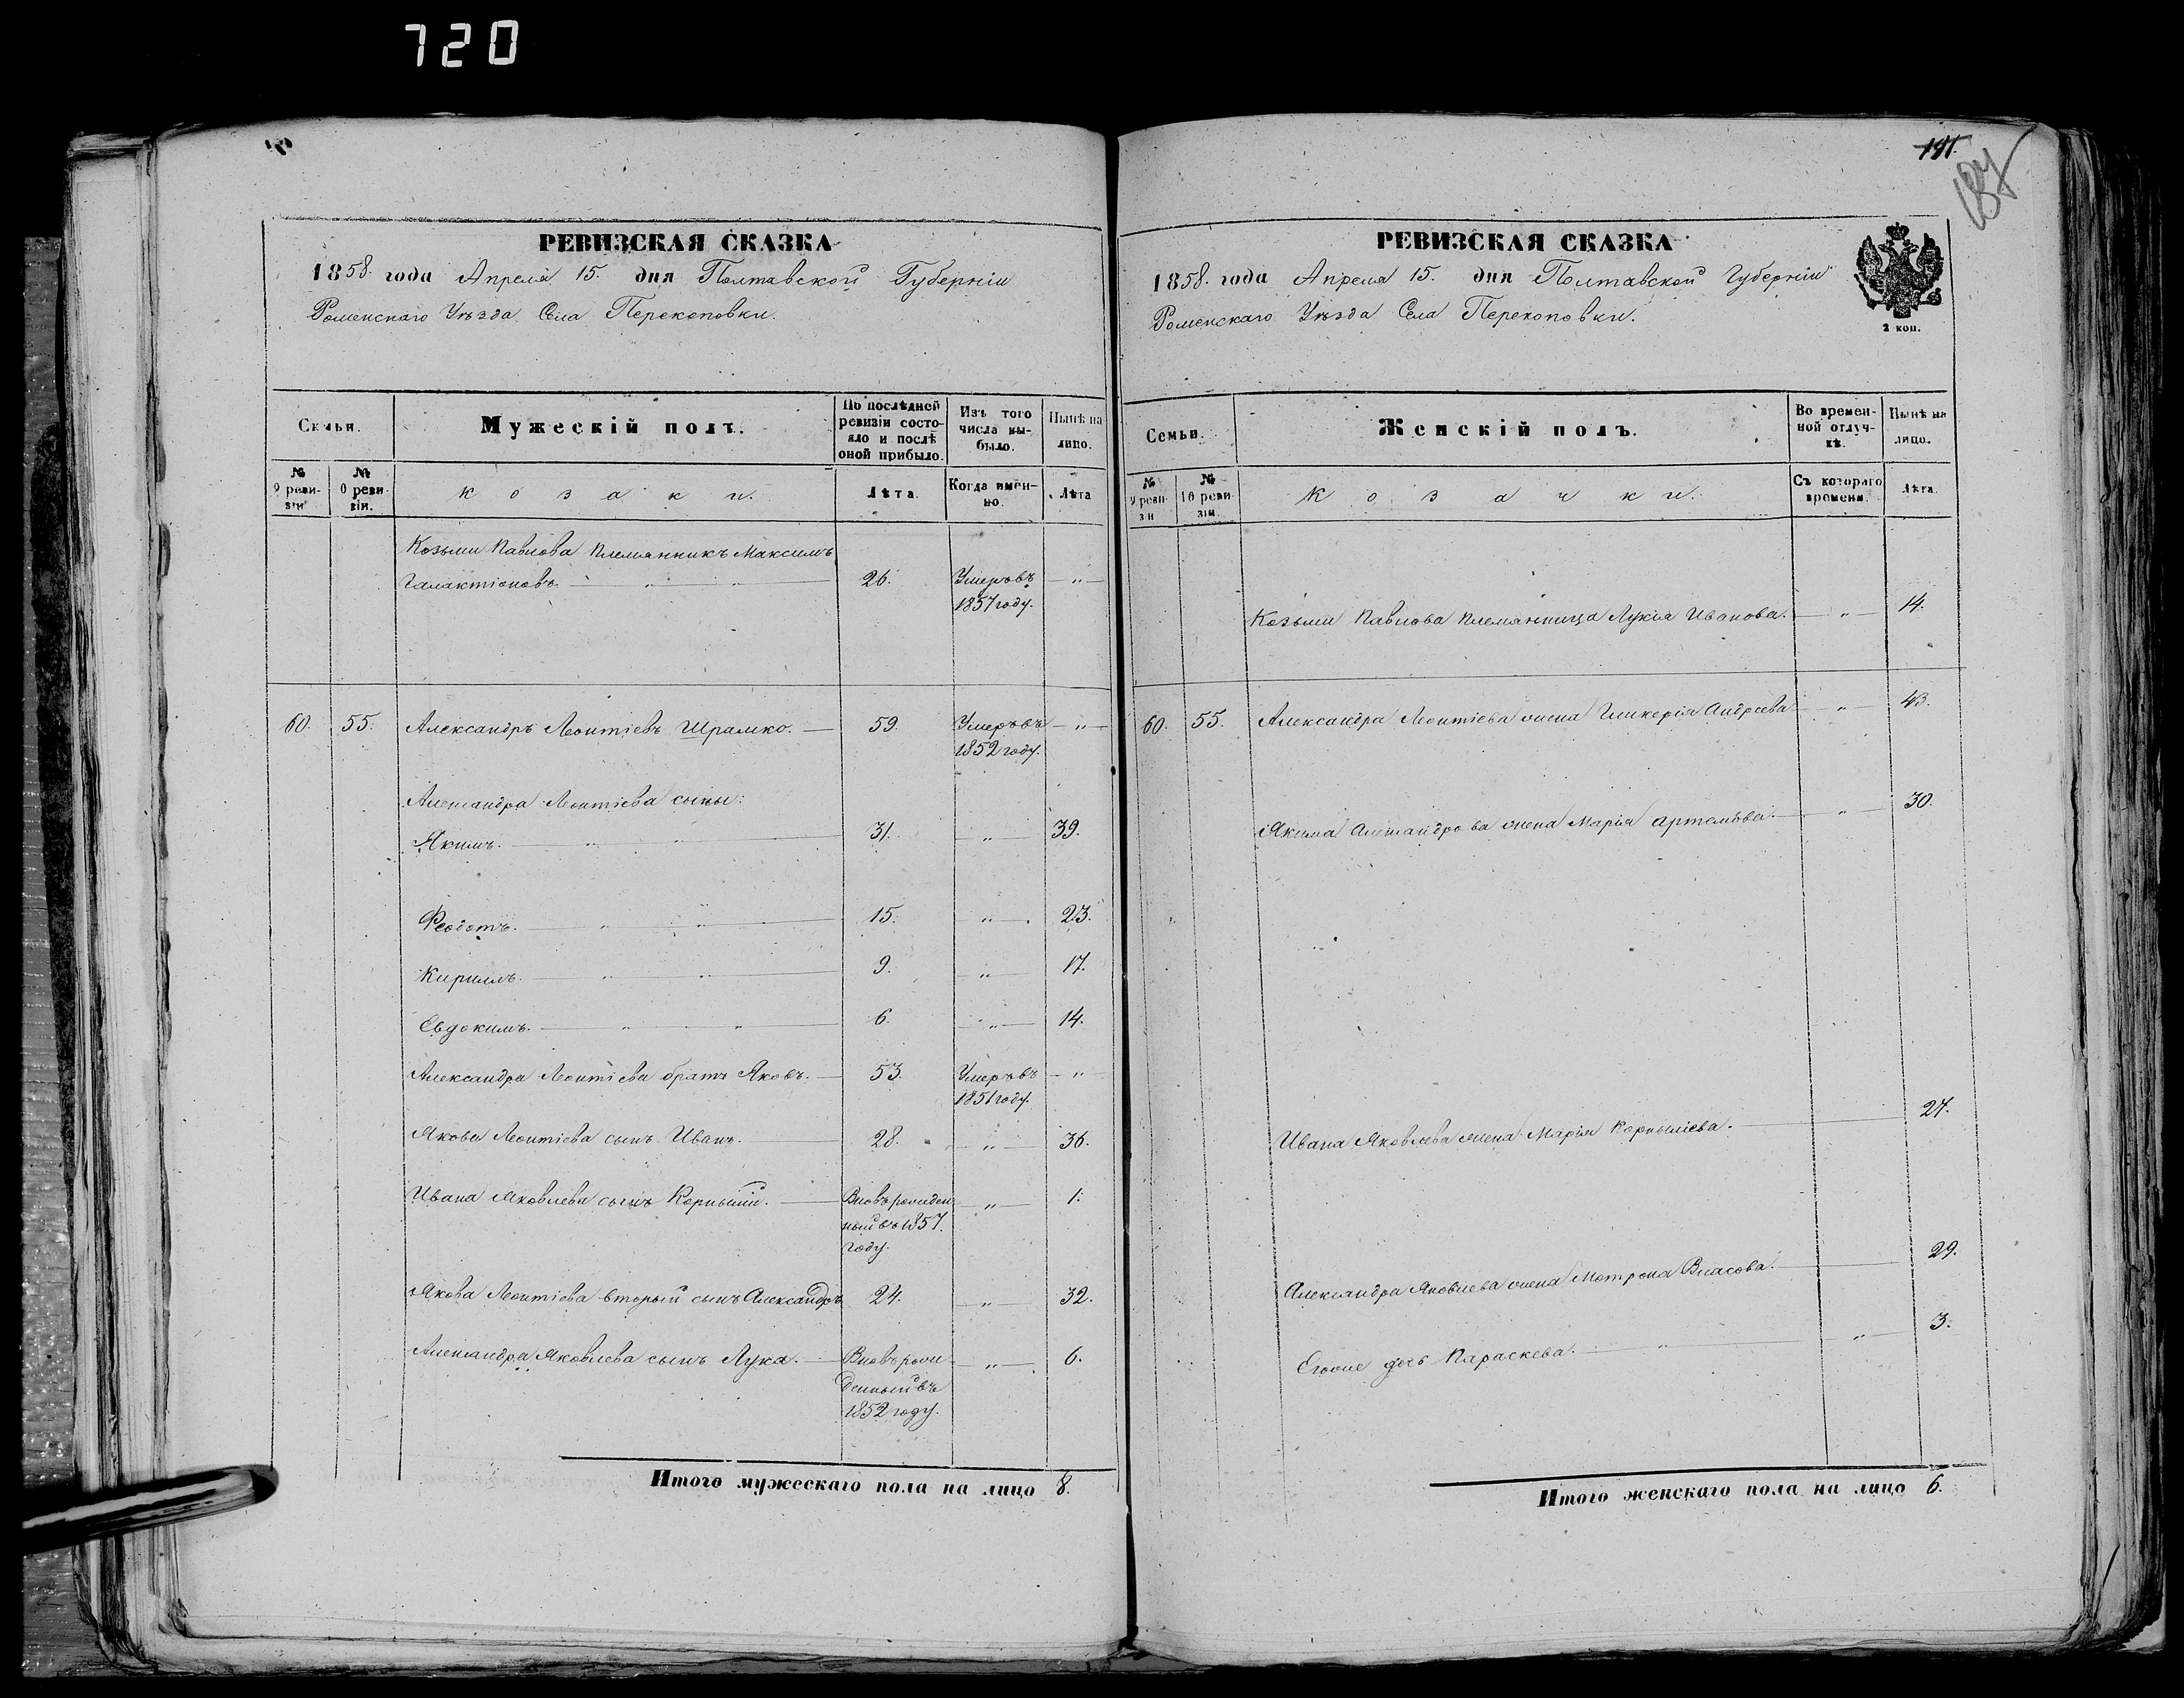 720
РЕВИЗСКАЯ СКАЗКА
1858. года Апреля 15. дня Полтавской Губерніи
Роменскаго Уѣзда Села Перекоповки.
Семьи.
Мужескій полъ.
По послѣдней ревизіи состояло и послѣ оной прибыло.
Изъ того числа выбыло.
Нынѣ на лицо.
№ 9 ревизіи
№ 10 ревизіи.
козаки.
Лѣта.
Когда именно.
Лѣта
Козьми Павлова племянникъ Максимъ
Галактіоновъ. — „ — „ — 26. Умеръ въ — „ —
1857 году.
60. 55. Александръ Леонтіевъ Шрамко. — 59. Умеръ въ — „ —
1852 году.
Александра Леонтіева сыны:
Якимъ. — „ — „ — 31. — „ — 39.
Феодотъ. — „ — „ — 15. — „ — 23.
Кирилъ. — „ — „ — 9. — „ — 17.
Евдокимъ. — „ — „ — 6. — „ — 14.
Александра Леонтіева братъ Яковъ. — 53. Умеръ въ — „
1851 году.
Якова Леонтіева сынъ Иванъ. — 28. — „ — 36.
Ивана Яковлева сынъ Корнылій. — Вновърожден — „ — 1.
ный въ 1857.
году.
Якова Леонтіева вторый сынъ Александръ 24. — „ — 32.
Александра Яковлева сынъ Лука. — Вновърож — „ — 6.
денный въ
1852 году.
Итого мужескаго пола на лицо 8.
191.
187
РЕВИЗСКАЯ СКАЗКА
1858. года Апреля 15. дня Полтавской Губерніи
Роменскаго Уѣзда Села Перекоповки.
2 коп.
Семьи.
Женскій полъ.
Во временной отлучкѣ.
Нынѣ на лицо.
№ 9 ревизіи
№ 10 ревизіи.
козачки.
Съ котораго времени.
Лѣта.
Козьми Павлова племянница Лукія Иванова. — „ — 14.
60. 55. Александра Леонтіева жена Гликерія Андреева — „ — 43.
Якима Александрова жена Марія Артемьева. — „ — 30.
Ивана Яковлева жена Марія Корныліева. — 27.
Александра Яковлева жена Мотрона Власова. — 29.
Егоже дочь Параскева. — „ — „ — 3.
Итого женскаго пола на лицо 6.